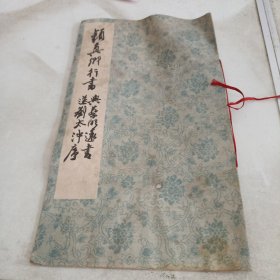 顏真卿行書
與蔡明遠書
送劉太沖序